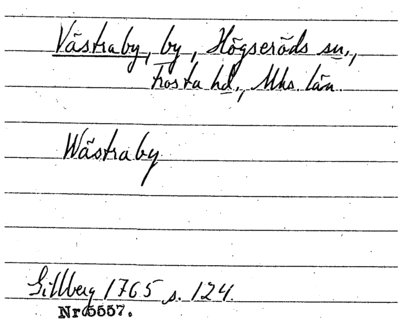 Västraby, by, Högseröds sn.,
Frosta hd., Mhs. län.
Wästraby
Gillberg 1765 s. 124.
Nr 5557.